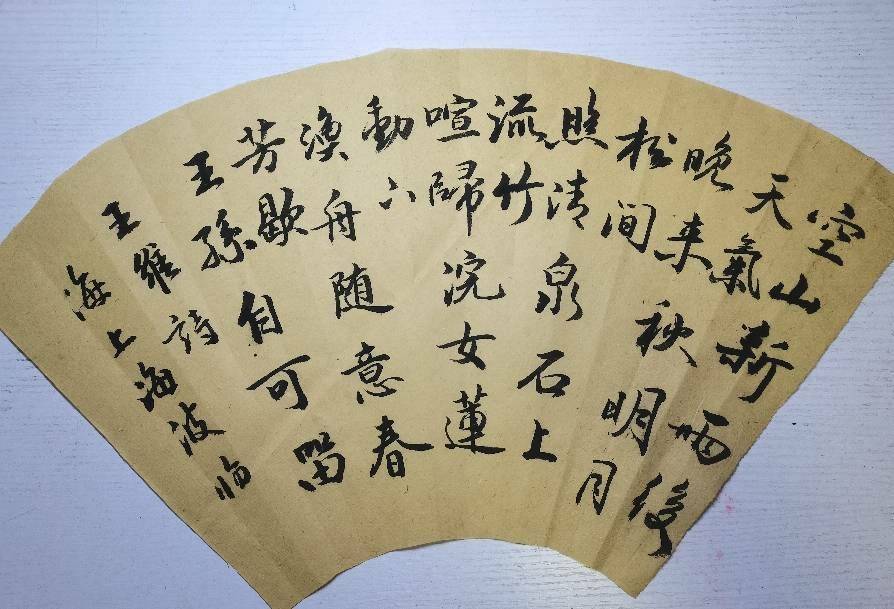 空山新雨後
天氣
晚来秋明月
松间
照清泉石上
流竹
喧歸浣女蓮
動下
漁舟随意春
芳歇
王孫自可留
王維詩
海上海波临